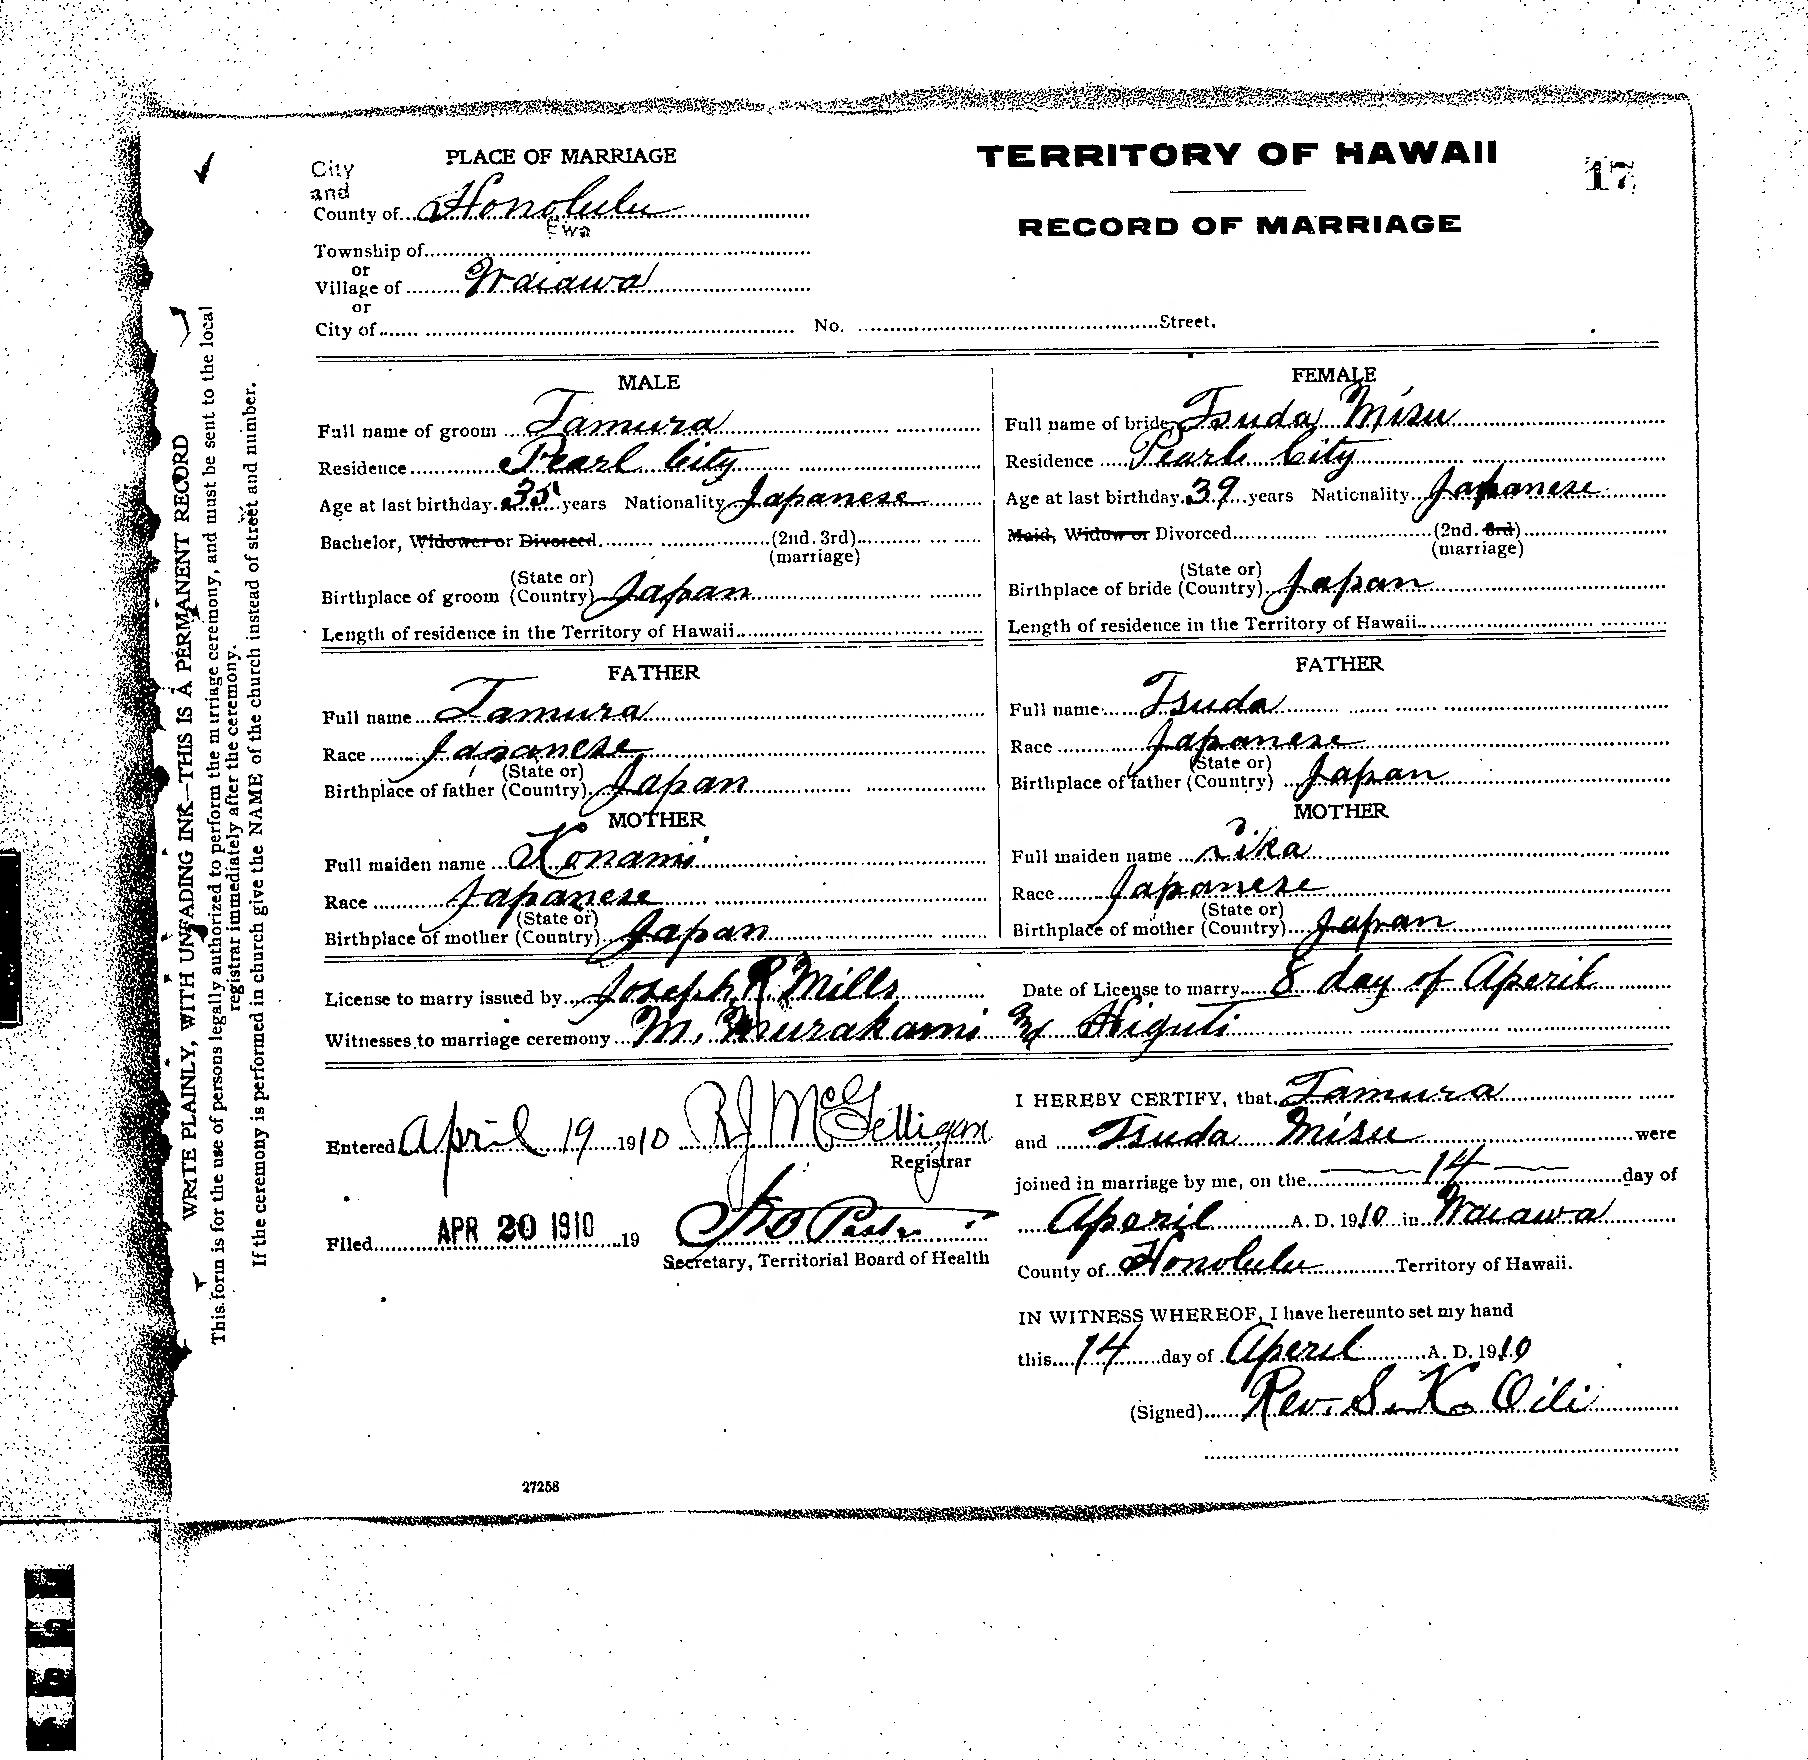 PLACE OF MARRIAGE
City
and
County of Honolulu
Ewa
Township of
or
Village of Waiawa
or
City of No. Street.
TERRITORY OF HAWAII
17
RECORD OF MARRIAGE
MALE
Full name of groom Tamura
Residence Pearl City
Age at last birthday 35 years Nationality Japanese
Bachelor, Widower or Divorced. (2nd. 3rd)
(marriage)
Birthplace of groom (State or) (Country) Japan
Length of residence in the Territory of Hawaii
FEMALE
Full name of bride Tsuda Misu
Residence Pearl City
Age at last birthday 39 years Nationality Japanese
Maid, Widow or Divorced (2nd. 3rd)
(marriage)
Birthplace of bride (State or) (Country) Japan
Length of residence in the Territory of Hawaii
FATHER
Full name Tamura
Race Japanese
Birthplace of father (State or) (Country) Japan
MOTHER
Full maiden name Konami
Race Japanese
Birthplace of mother (State or) (Country) Japan
FATHER
Full name Tsuda
Race Japanese
Birthplace of father (State or) (Country) Japan
MOTHER
Full maiden name
Race Japanese
Birthplace of mother (State or) (Country) Japan
License to marry issued by Joseph R Mills Date of License to marry 8 day of Aperil
Witnesses to marriage ceremony M. Murakami Higuti
Entered April 19 1910 RJ McGettigan
Registrar
Filed APR 20 1910 19
Secretary, Territorial Board of Health
I HEREBY CERTIFY, that Tamura
and Tsuda Misu were
joined in marriage by me, on the 14 day of
Aperil A. D. 1910 in Waiawa
County of Honolulu Territory of Hawaii.
IN WITNESS WHEREOF, I have hereunto set my hand
this 14 day of Aperil A. D. 1910
(Signed) Rev. S. K. Oili
27258
WRITE PLAINLY, WITH UNFADING INK—THIS IS A PERMANENT RECORD
This form is for the use of persons legally authorized to perform the marriage ceremony, and must be sent to the local
registrar immediately after the ceremony.
If the ceremony is performed in church give the NAME of the church instead of street and number.